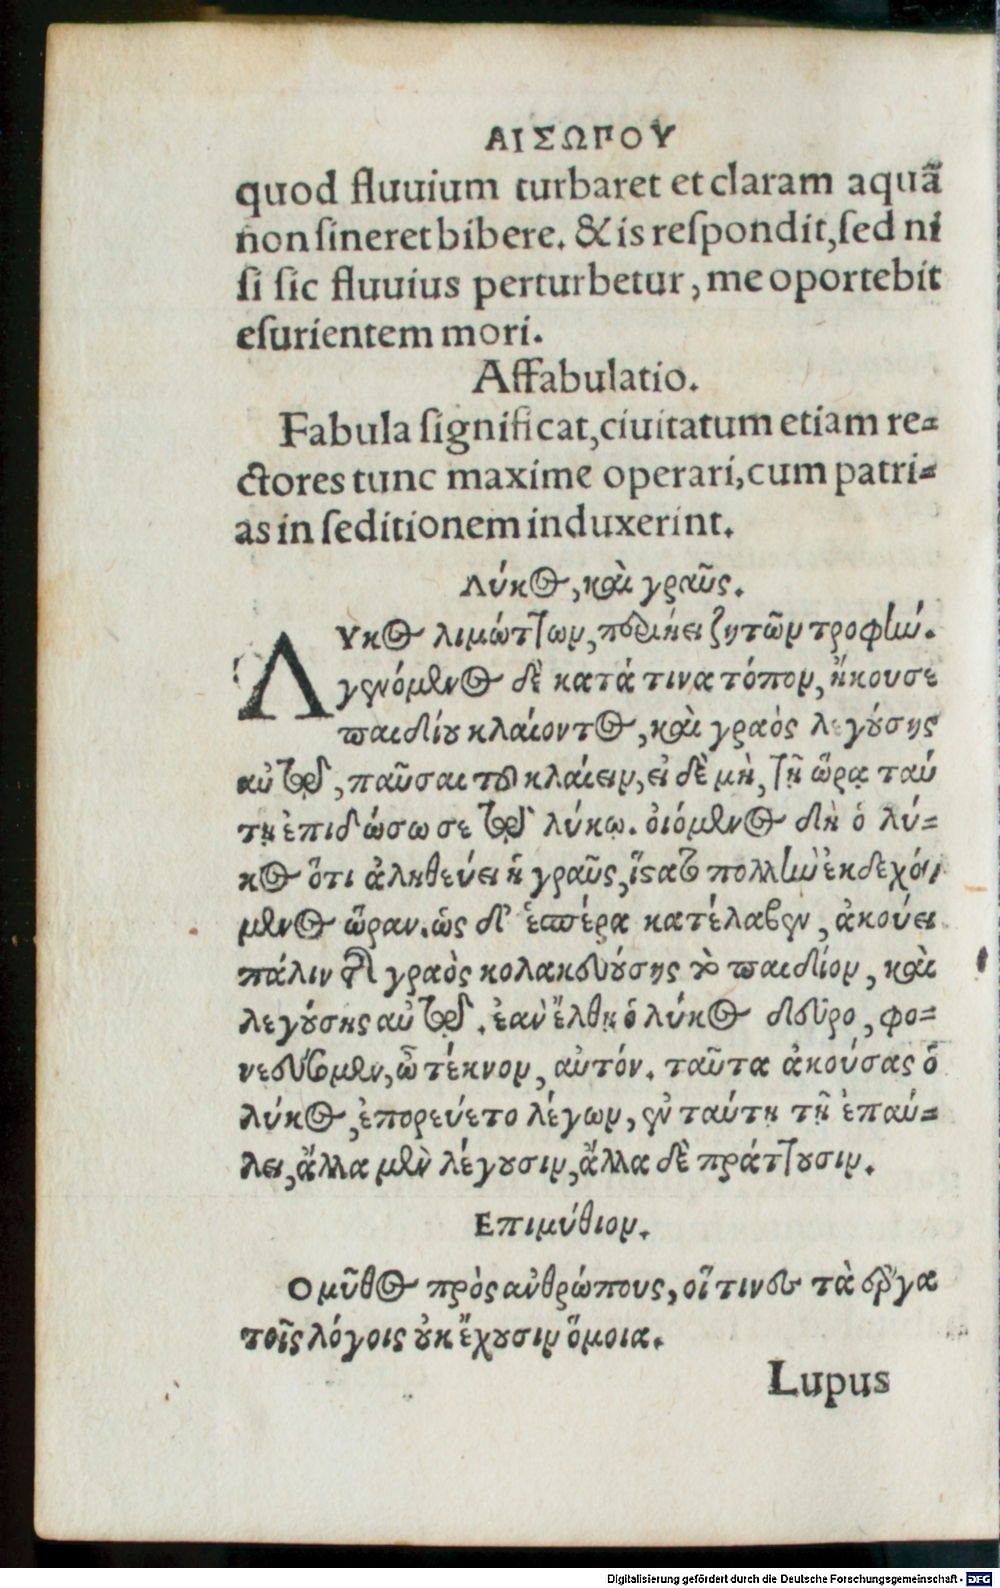 ΑΙΣΩΠΟΥ
quod fluuium turbaret et claram aquã
non sineret bibere. & is reſpondit, ſed ni
ſi ſic fluuius perturbetur, me oportebit
eſurientem mori.
Affabulatio.
Fabula ſignificat, ciuitatum etiam re=
ctores tunc maxime operari, cum patri=
as in ſeditionem induxerint.
Λύκος, καὶ γραῦς.
ΛΥκος λιμώττων, περιῄει ζητῶν τροφήν.
γενόμενος δὲ κατά τινα τόπον, ἤκουσε
παιδίου κλαίοντος, καὶ γραὸς λεγούσης
αὐτῷ, παῦσαι τοῦ κλαίειν, εἰ δὲ μὴ, τῇ ὥρᾳ ταύ
τῃ ἐπιδώσω σε τῷ λύκῳ. οἰόμενος δὴ ὁ λύ=
κος ὅτι ἀληθεύει ἡ γραῦς, ἵστατο πολλὴν ἐκδεχό
μενος ὥραν. ὡς δ' ἑσπέρα κατέλαβεν, ἀκούει
πάλιν τῆς γραὸς κολακευούσης τὸ παιδίον, καὶ
λεγούσης αὐτῷ. ἐὰν ἔλθῃ ὁ λύκος δεῦρο, φο=
νεύσομεν, ὦ τέκνον, αὐτόν. ταῦτα ἀκούσας ὁ
λύκος, ἐπορεύετο λέγων, ἐν ταύτῃ τῇ ἐπαύ=
λει, ἄλλα μὲν λέγουσιν, ἄλλα δὲ πράττουσιν.
Επιμύθιον.
Ο μῦθος πρὸς ἀνθρώπους, οἵτινες τὰ ἔργα
τοῖς λόγοις οὐκ ἔχουσιν ὅμοια.
Lupus
Digitalisierung gefördert durch die Deutsche Forschungsgemeinschaft - DFG